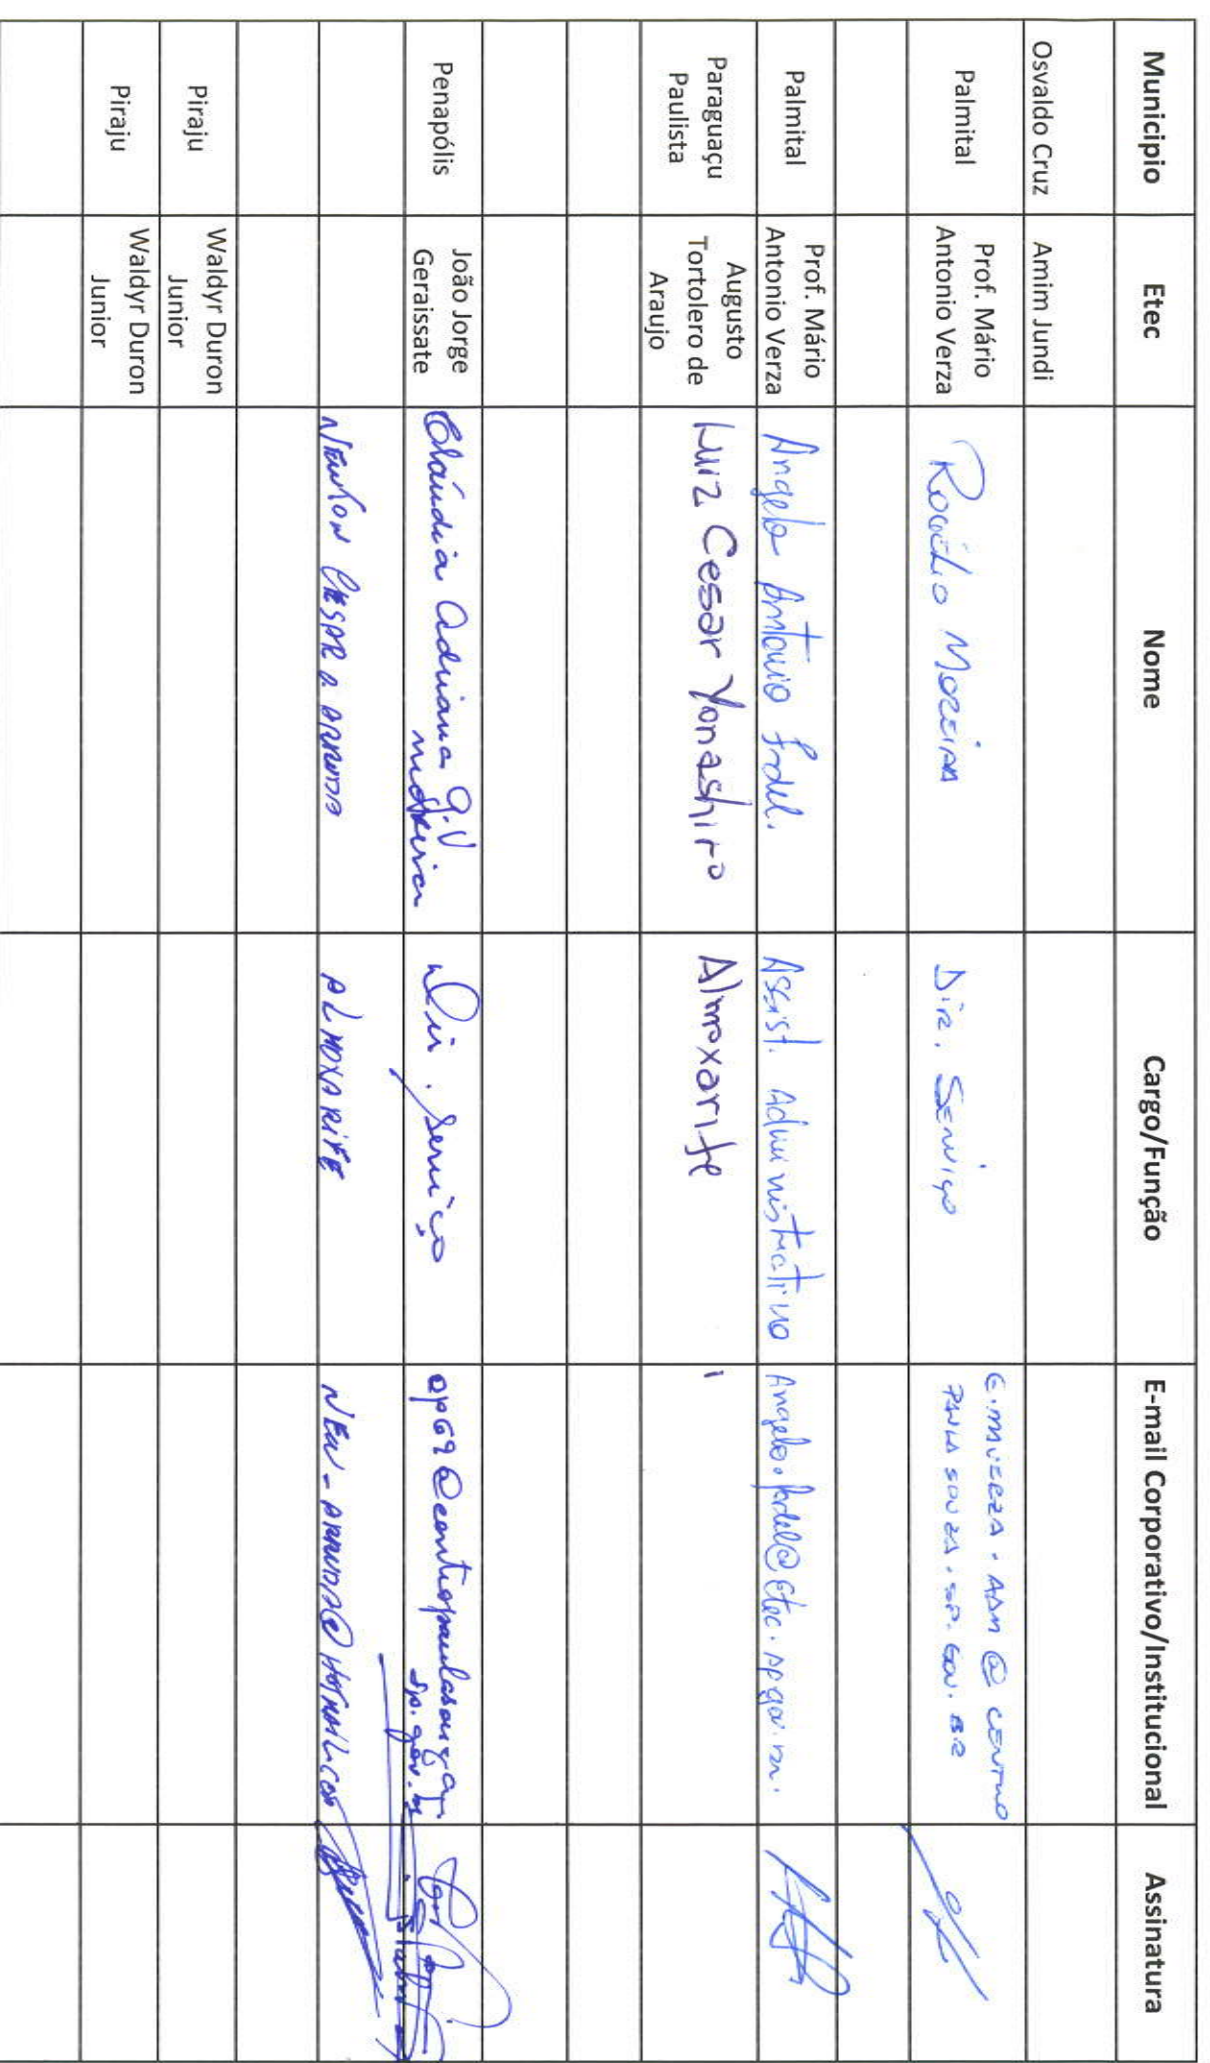 Municipio Etec Nome Cargo/Função E-mail Corporativo/Institucional Assinatura
Osvaldo Cruz Amim Jundi
Palmital Prof. Mário Antonio Verza Rogélio Moreira Dir. Serviço E.MAVERZA.ADM @ CENTRO
PAULA SOUZA.SP.GOV.BR
Palmital Prof. Mário Antonio Verza Angelo Antonio Fadel. Assist. Administrativo
Paraguaçu Paulista Augusto Tortolero de Araujo Luiz Cesar Yonashiro Almoxarife
Penapólis João Jorge Geraissate Cláudia Adriana G.V Dir. Serviço op69@centropaulasouza.
sp.gov.br
Newton Cesar A Arruda ALMOXARIFE NEW-ARRUDA@HOTMAIL.COM
Piraju Waldyr Duron Junior
Piraju Waldyr Duron Junior